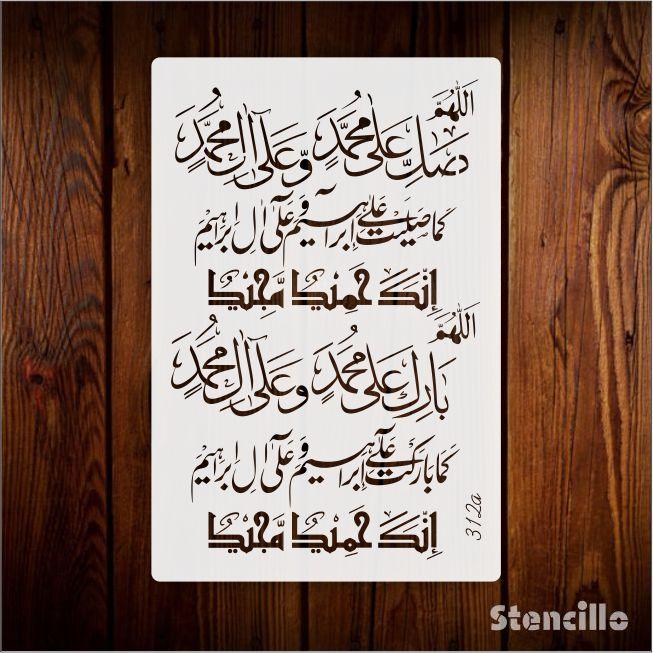 Stencillo
اَللّٰهُمَّ
صَلِّ عَلٰى مُحَمَّدٍ وَّعَلٰٓى اٰلِ مُحَمَّدٍ
كَمَا صَلَّيْتَ عَلٰٓى اِبْرَاهِيْمَ وَعَلٰٓى اٰلِ اِبْرَاهِيْمَ
اِنَّكَ حَمِيْدٌ مَّجِيْدٌ
اَللّٰهُمَّ
بَارِكْ عَلٰى مُحَمَّدٍ وَّعَلٰٓى اٰلِ مُحَمَّدٍ
كَمَا بَارَكْتَ عَلٰٓى اِبْرَاهِيْمَ وَعَلٰٓى اٰلِ اِبْرَاهِيْمَ
اِنَّكَ حَمِيْدٌ مَّجِيْدٌ
312a
Stencillo